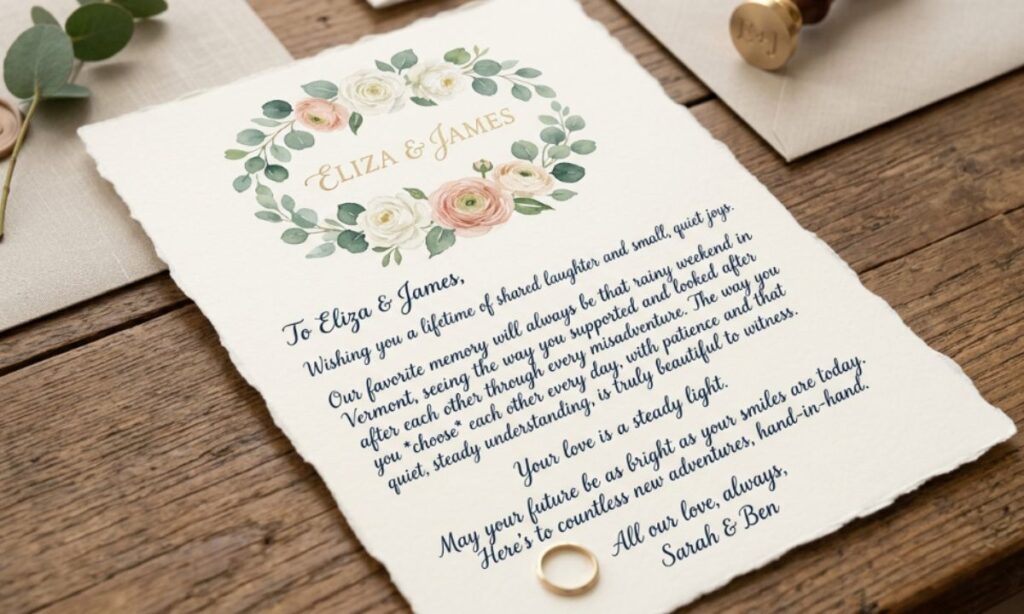 ELIZA & JAMES
To Eliza & James,
Wishing you a lifetime of shared laughter and small, quiet joys.
Our favorite memory will always be that rainy weekend in
Vermont, seeing the way you supported and looked after
after each other through every misadventure. The way you
you *choose* each other every day, with patience and that
quiet, steady understanding, is truly beautiful to witness.
Your love is a steady light.
May your future be as bright as your smiles are today.
Here's to countless new adventures, hand-in-hand.
All our love, always,
Sarah & Ben